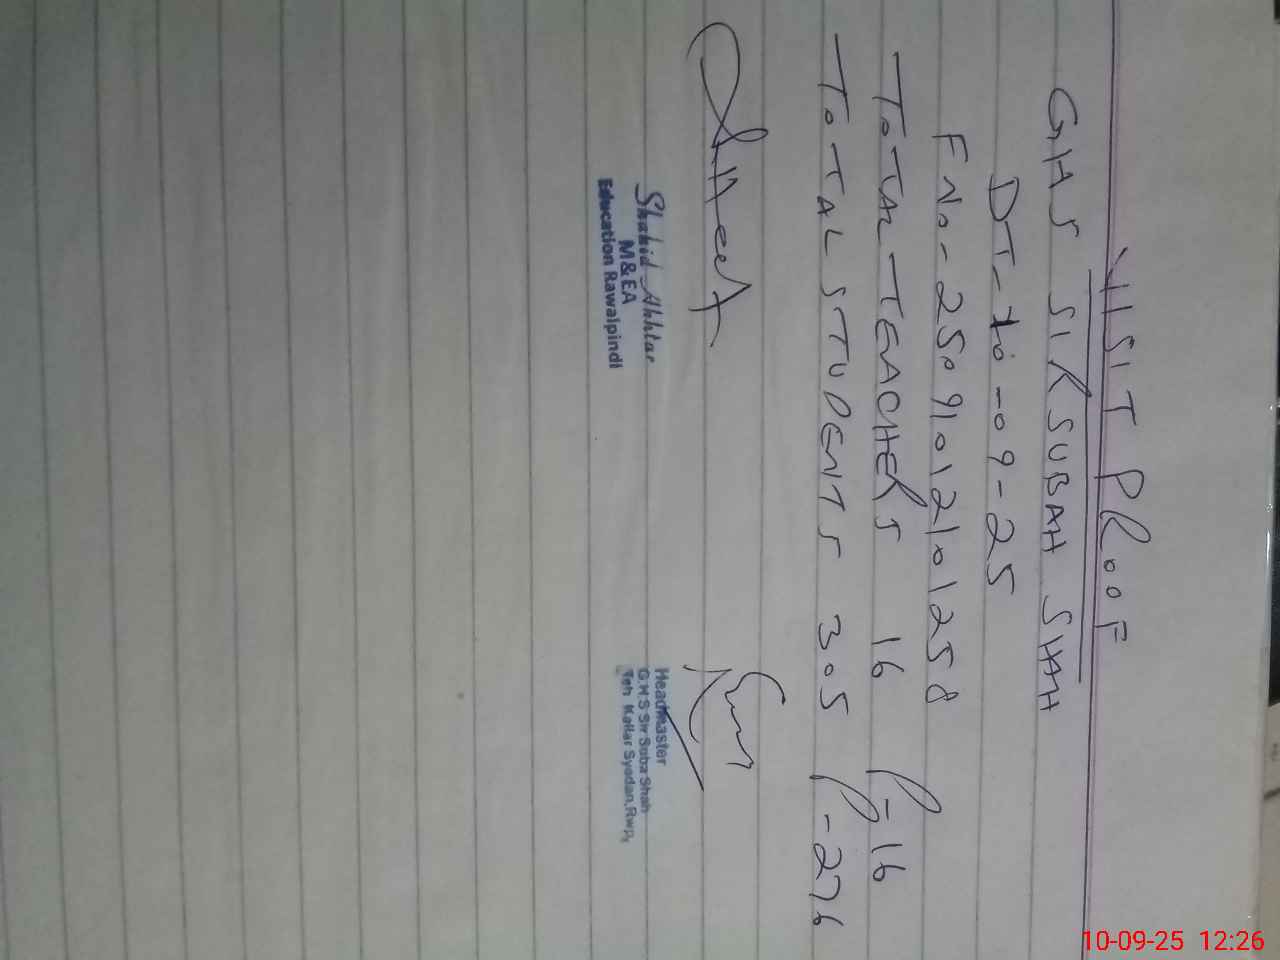 VISIT PROOF
GHS SIR SUBAH SHAH
DT-10-09-25
F No-25091012101258
TOTAL TEACHERS 16 P-16
TOTAL STUDENTS 305 P-276
Shahid Akhtar
M&EA
Education Rawalpindi
Headmaster
G.H.S Sir Suba Shah
Teh Kallar Syedan, Rwp,
10-09-25 12:26